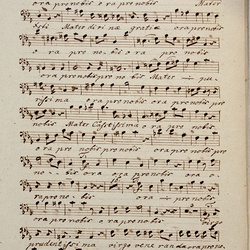 ora pro nobis ora pro nobis Mater
Mater divinae gratiae ora pro nobis
ora pro nobis ora pro nobis
ora pro nobis pro nobis Mater pu
rissima ora pro nobis ora pro
nobis Mater Castissima ora pro nobis
ora pro nobis pro nobis ora pro
nobis ora
ra pro nobis ora pro nobis
ora pro nobis ora pro nobis Virgo
prudentissima virgo veneranda ora pro no